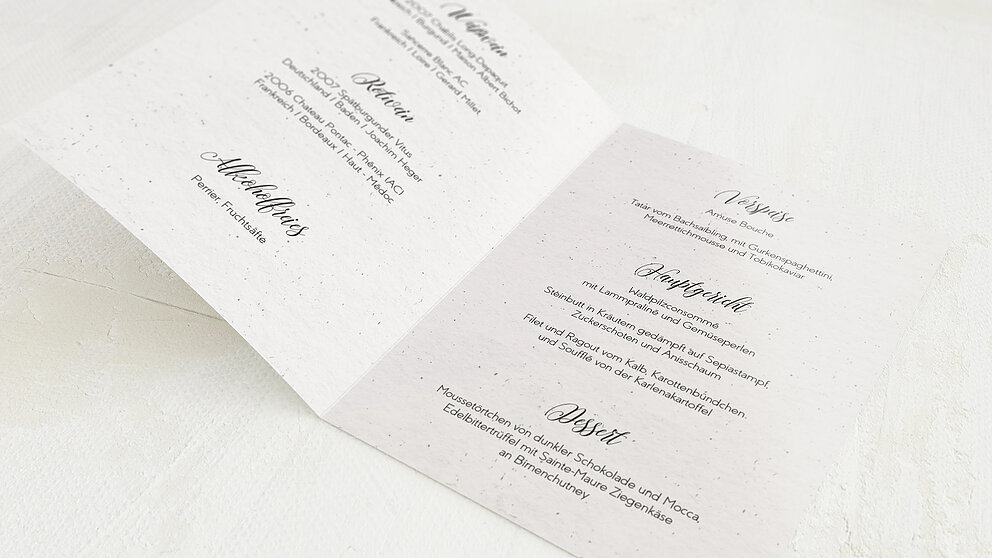 Weißwein
2007 Chablis Long-Depaquit
Frankreich / Burgund / Maison Albert Bichot
Sancerre Blanc AC
Frankreich / Loire / Gerard Millet
Rotwein
2007 Spätburgunder Vitus
Deutschland / Baden / Joachim Heger
2006 Chateau Pontac - Phénix (AC)
Frankreich / Bordeaux / Haut - Médoc
Alkoholfreies
Perrier, Fruchtsäfte
Vorspeise
Amuse Bouche
Tatar vom Bachsaibling, mit Gurkenspaghettini,
Meerrettichmousse und Tobikokaviar
Hauptgericht
Waldpilzconsommé
mit Lammpraliné und Gemüseperlen
Steinbutt in Kräutern gedämpft auf Sepiastampf,
Zuckerschoten und Anisschaum
Filet und Ragout vom Kalb, Karottenbündchen,
und Soufflé von der Karlenakartoffel
Dessert
Moussetörtchen von dunkler Schokolade und Mocca,
Edelbittertrüffel mit Sainte-Maure Ziegenkäse
an Birnenchutney